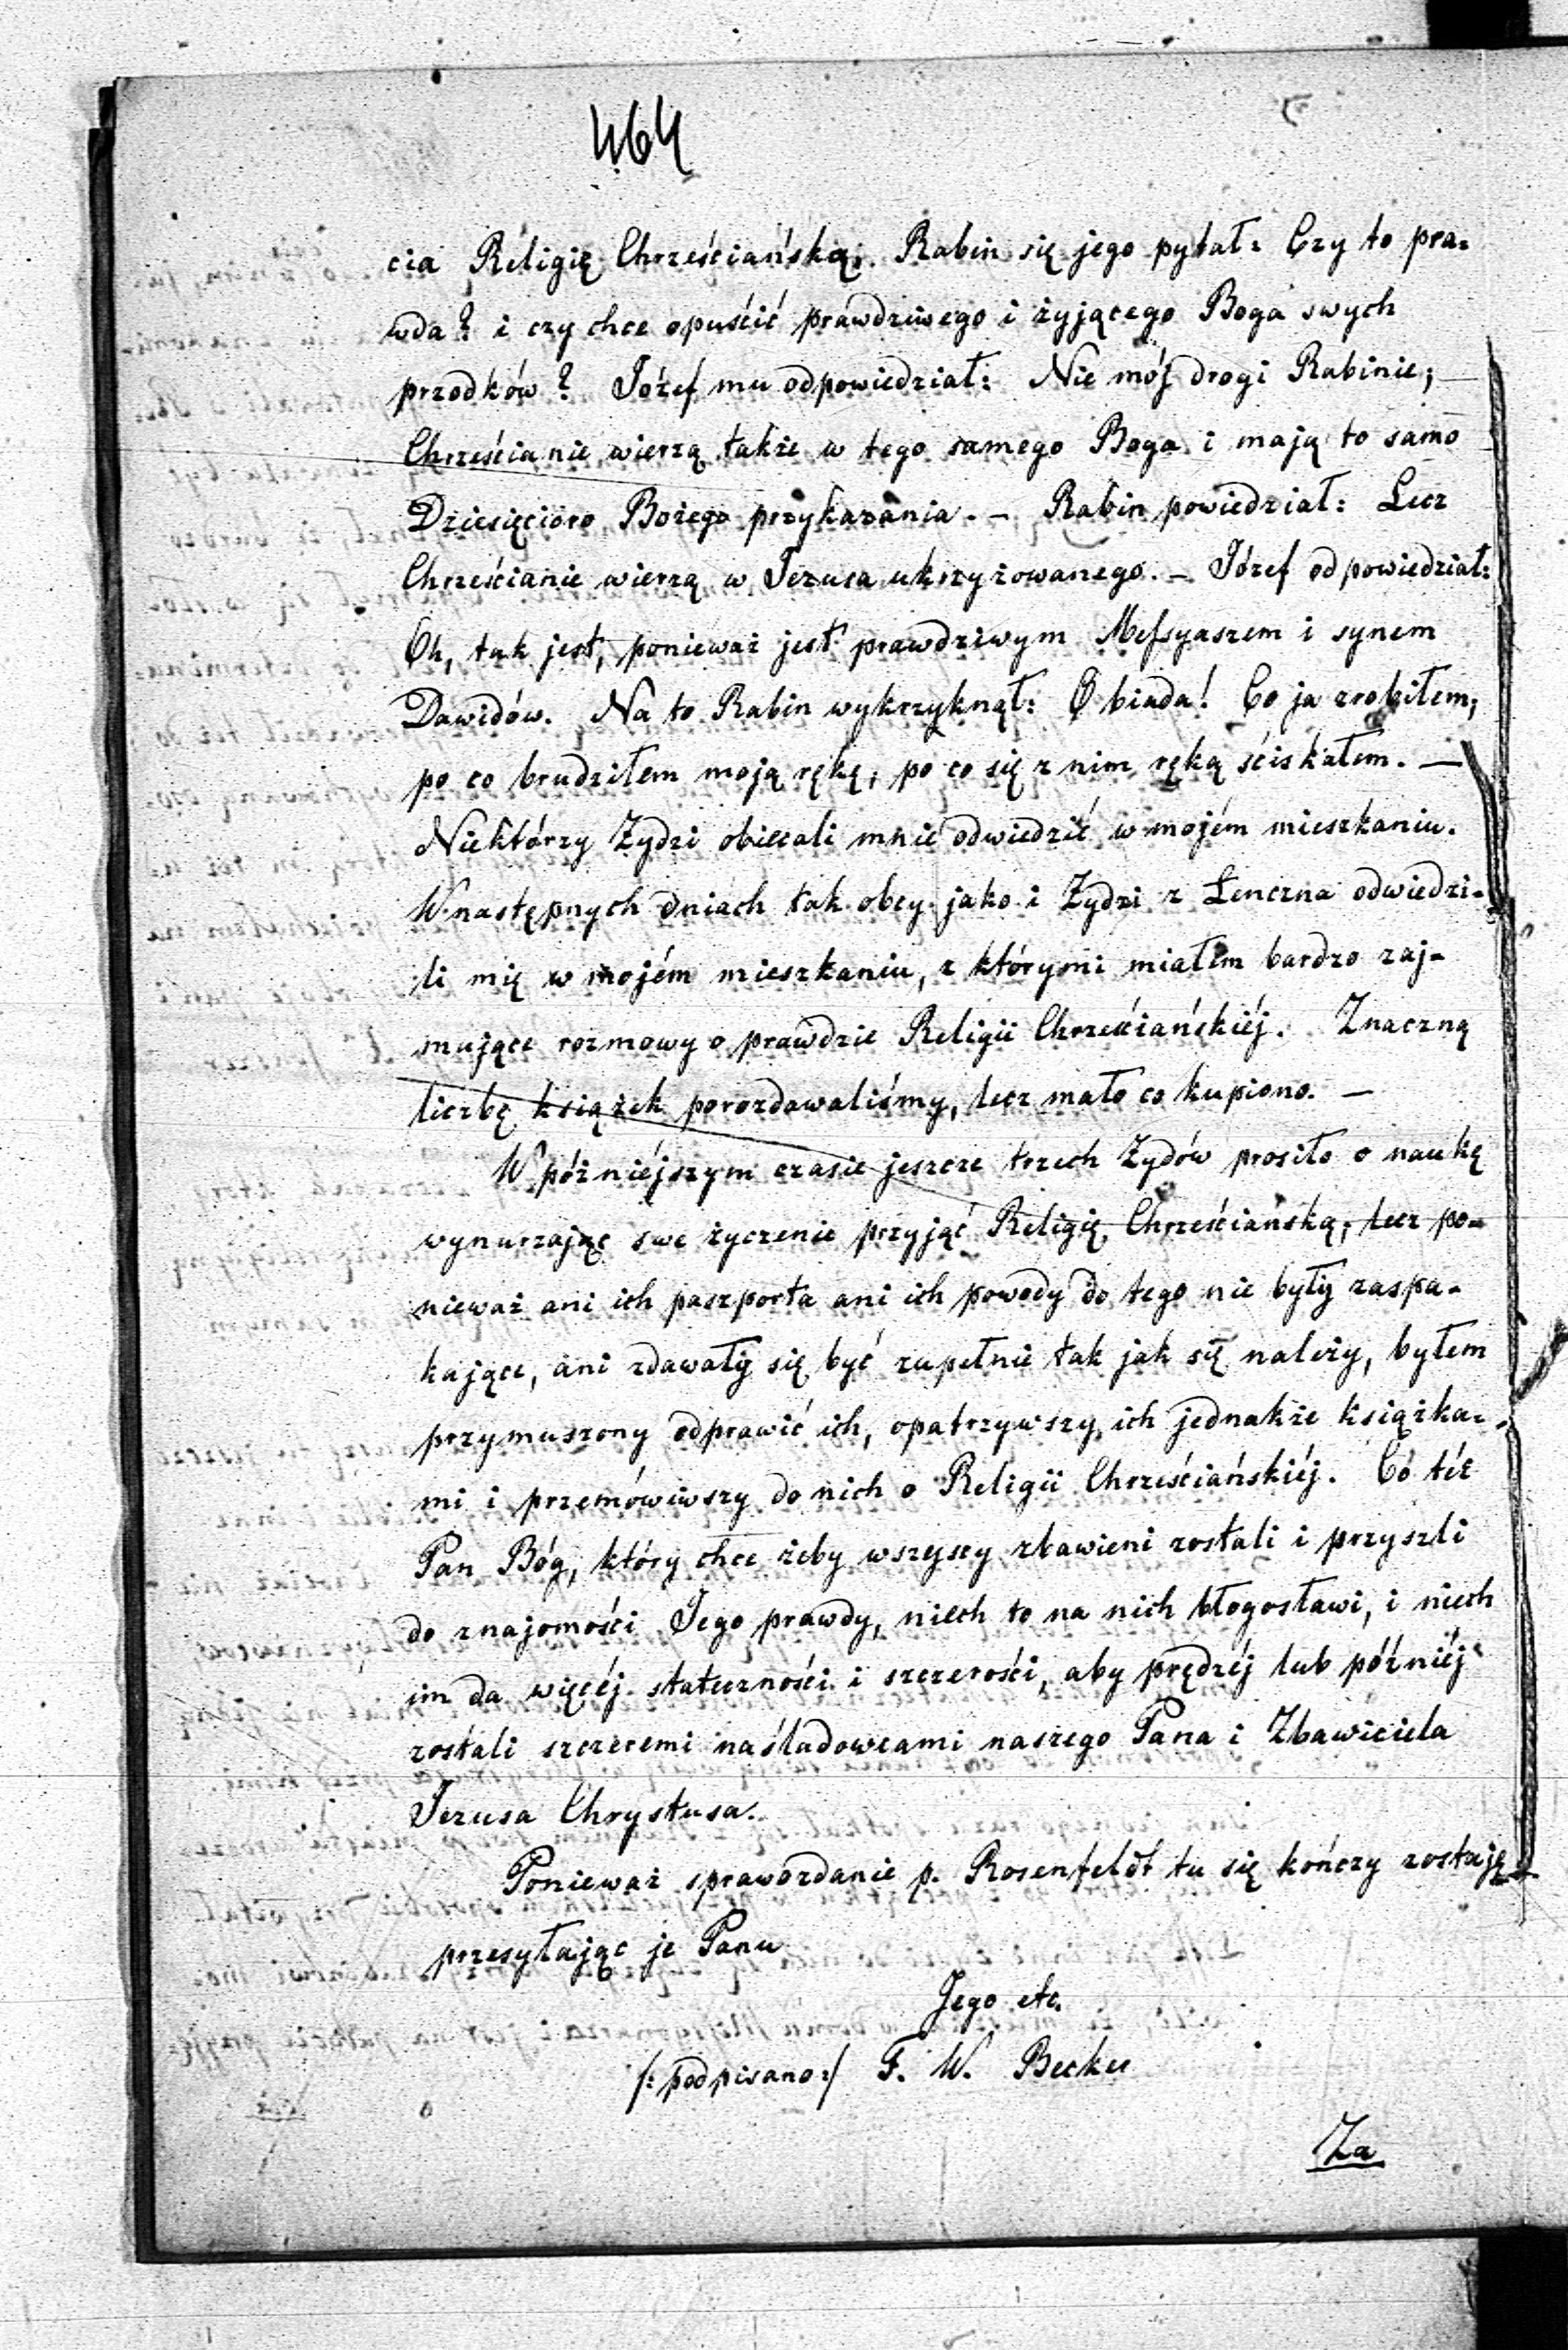 464
cia Religię Chrześciańską; Rabin się jego pytał: Czy to pra-
wda? i czy chce opuścić prawdziwego i żyjącego Boga swych
przodków? Józef mu odpowiedział: Nie mój drogi Rabinie;
Chrześcianie wierzą także w tego samego Boga i mają to samo
Dziesięcioro Bożego przykazania. – Rabin powiedział: Lecz
Chrześcianie wierzą w Jezusa ukrzyżowanego. – Józef odpowiedział:
Oh, tak jest, ponieważ jest prawdziwym Messyaszem i synem
Dawidów. Na to Rabin wykrzyknął: O biada! Co ja zrobiłem,
po co brudziłem moją rękę, po co się z nim ręką ściskałem. —
Niektórzy Żydzi obiecali mnie odwiedzić w mojém mieszkaniu.
W następnych dniach tak obcy jako i Żydzi z Łenczna odwiedzi-
li mię w mojém mieszkaniu, z którymi miałem bardzo zaj-
mujące rozmowy o prawdzie Religii Chrześciańskiéj. Znaczną
liczbę książek porozdawaliśmy, lecz mało co kupiono. —
W późniéjszym czasie jeszcze trzech Żydów prosiło o naukę
wynurzając swe życzenie przyjąć Religię Chrześciańską, lecz po-
nieważ ani ich paszporta ani ich powody do tego nie były zaspa-
kające, ani zdawały się być zupełnie tak jak się należy, byłem
przymuszony odprawić ich, opatrzywszy ich jednakże książka-
mi i przemówiwszy do nich o Religii Chrześciańskiéj. Co téż
Pan Bóg, który chce żeby wszyscy zbawieni zostali i przyszli
do znajomości Jego prawdy, niech to na nich błogosławi, i niech
im da więcéj stateczności i szczerości, aby prędzéj lub późniéj
zostali szczeremi naśladowcami naszego Pana i Zbawiciela
Jezusa Chrystusa.
Ponieważ sprawozdanie p. Rosenfeldt tu się kończy zostaję
przesyłając je Panu
Jego etc.
/: podpisano :/ F. W. Becker
Za